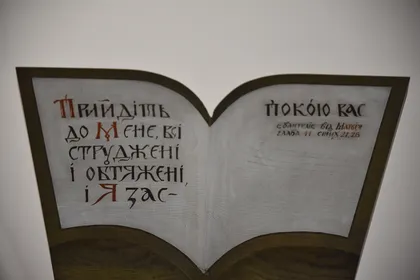 Прийдіть
до Мене, всі
струджені
і обтяжені,
і Я зас-
покою вас
Євангеліє від Матвія
глава 11 стих 28